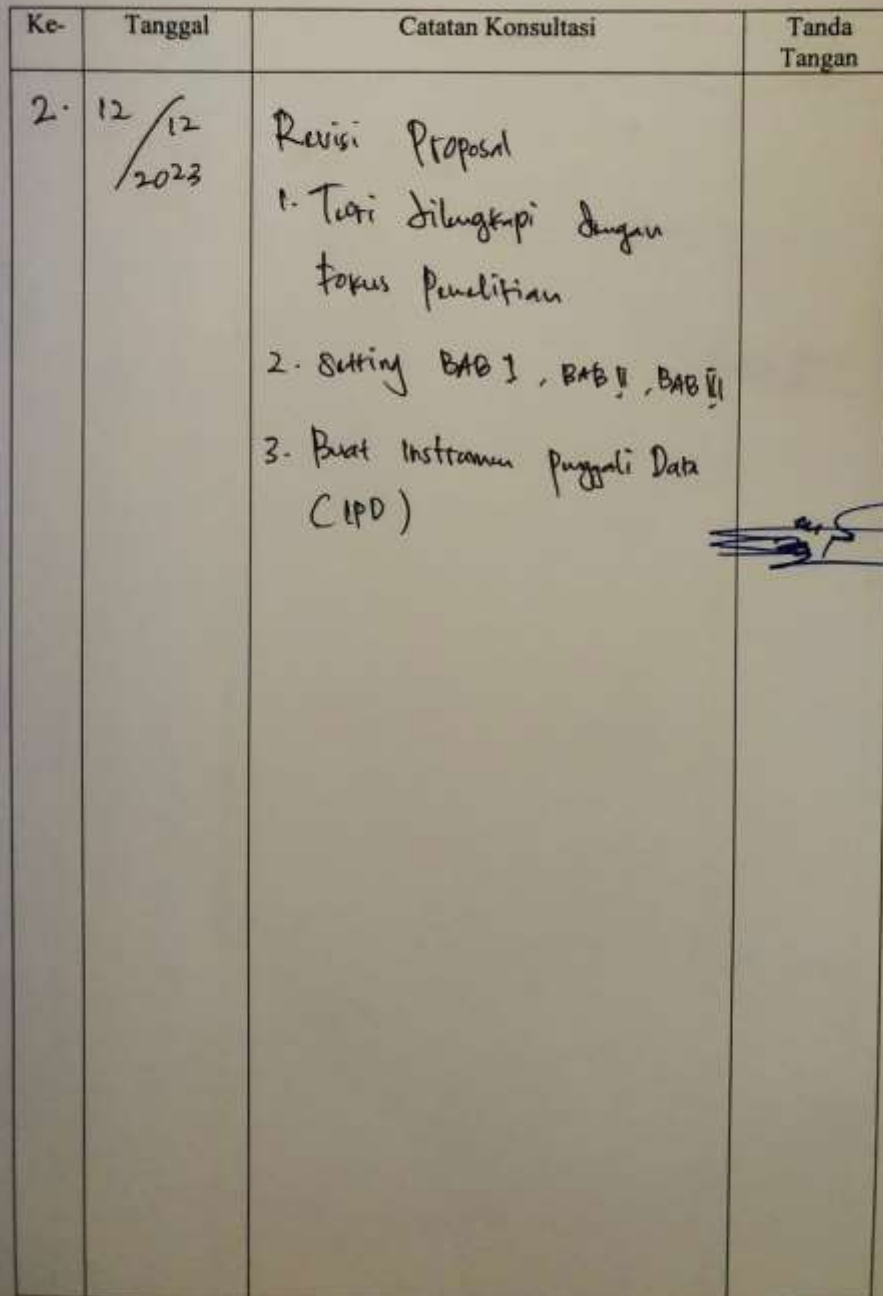 Ke- Tanggal Catatan Konsultasi Tanda
Tangan
2. 12/12/2023 Revisi Proposal
1. Teori dilengkapi dengan
fokus Penelitian
2. Setting BAB I, BAB II, BAB III
3. Buat Instrumen Penggali Data
(IPD)